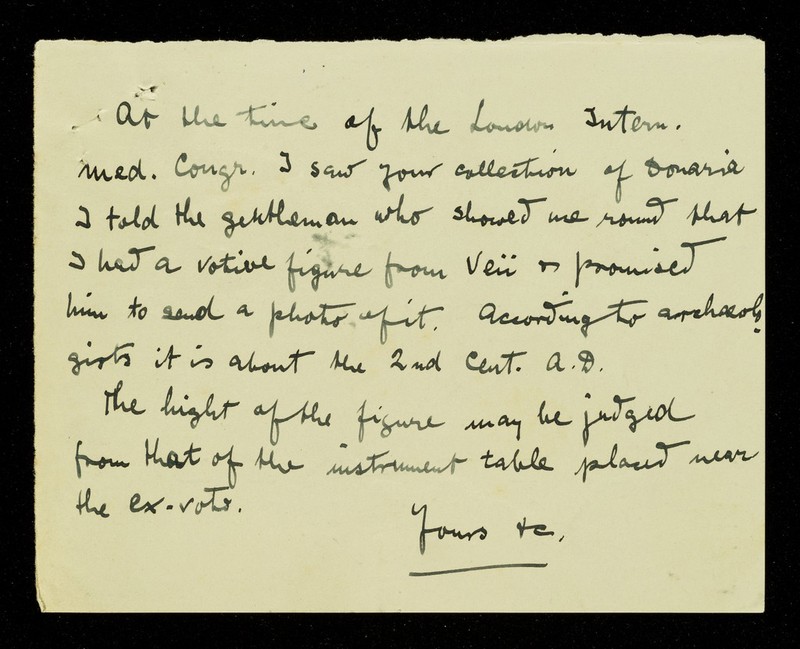 At the time of the London Intern.
med. Congr. I saw your collection of Donaria
I told the gentleman who showed me round that
I had a votive figure from Veii & promised
him to send a photo of it. According to archaeolo
gists it is about the 2nd Cent. A.D.
The hight of the figure may be judged
from that of the instrument table placed near
the ex-voto.
Yours &c.